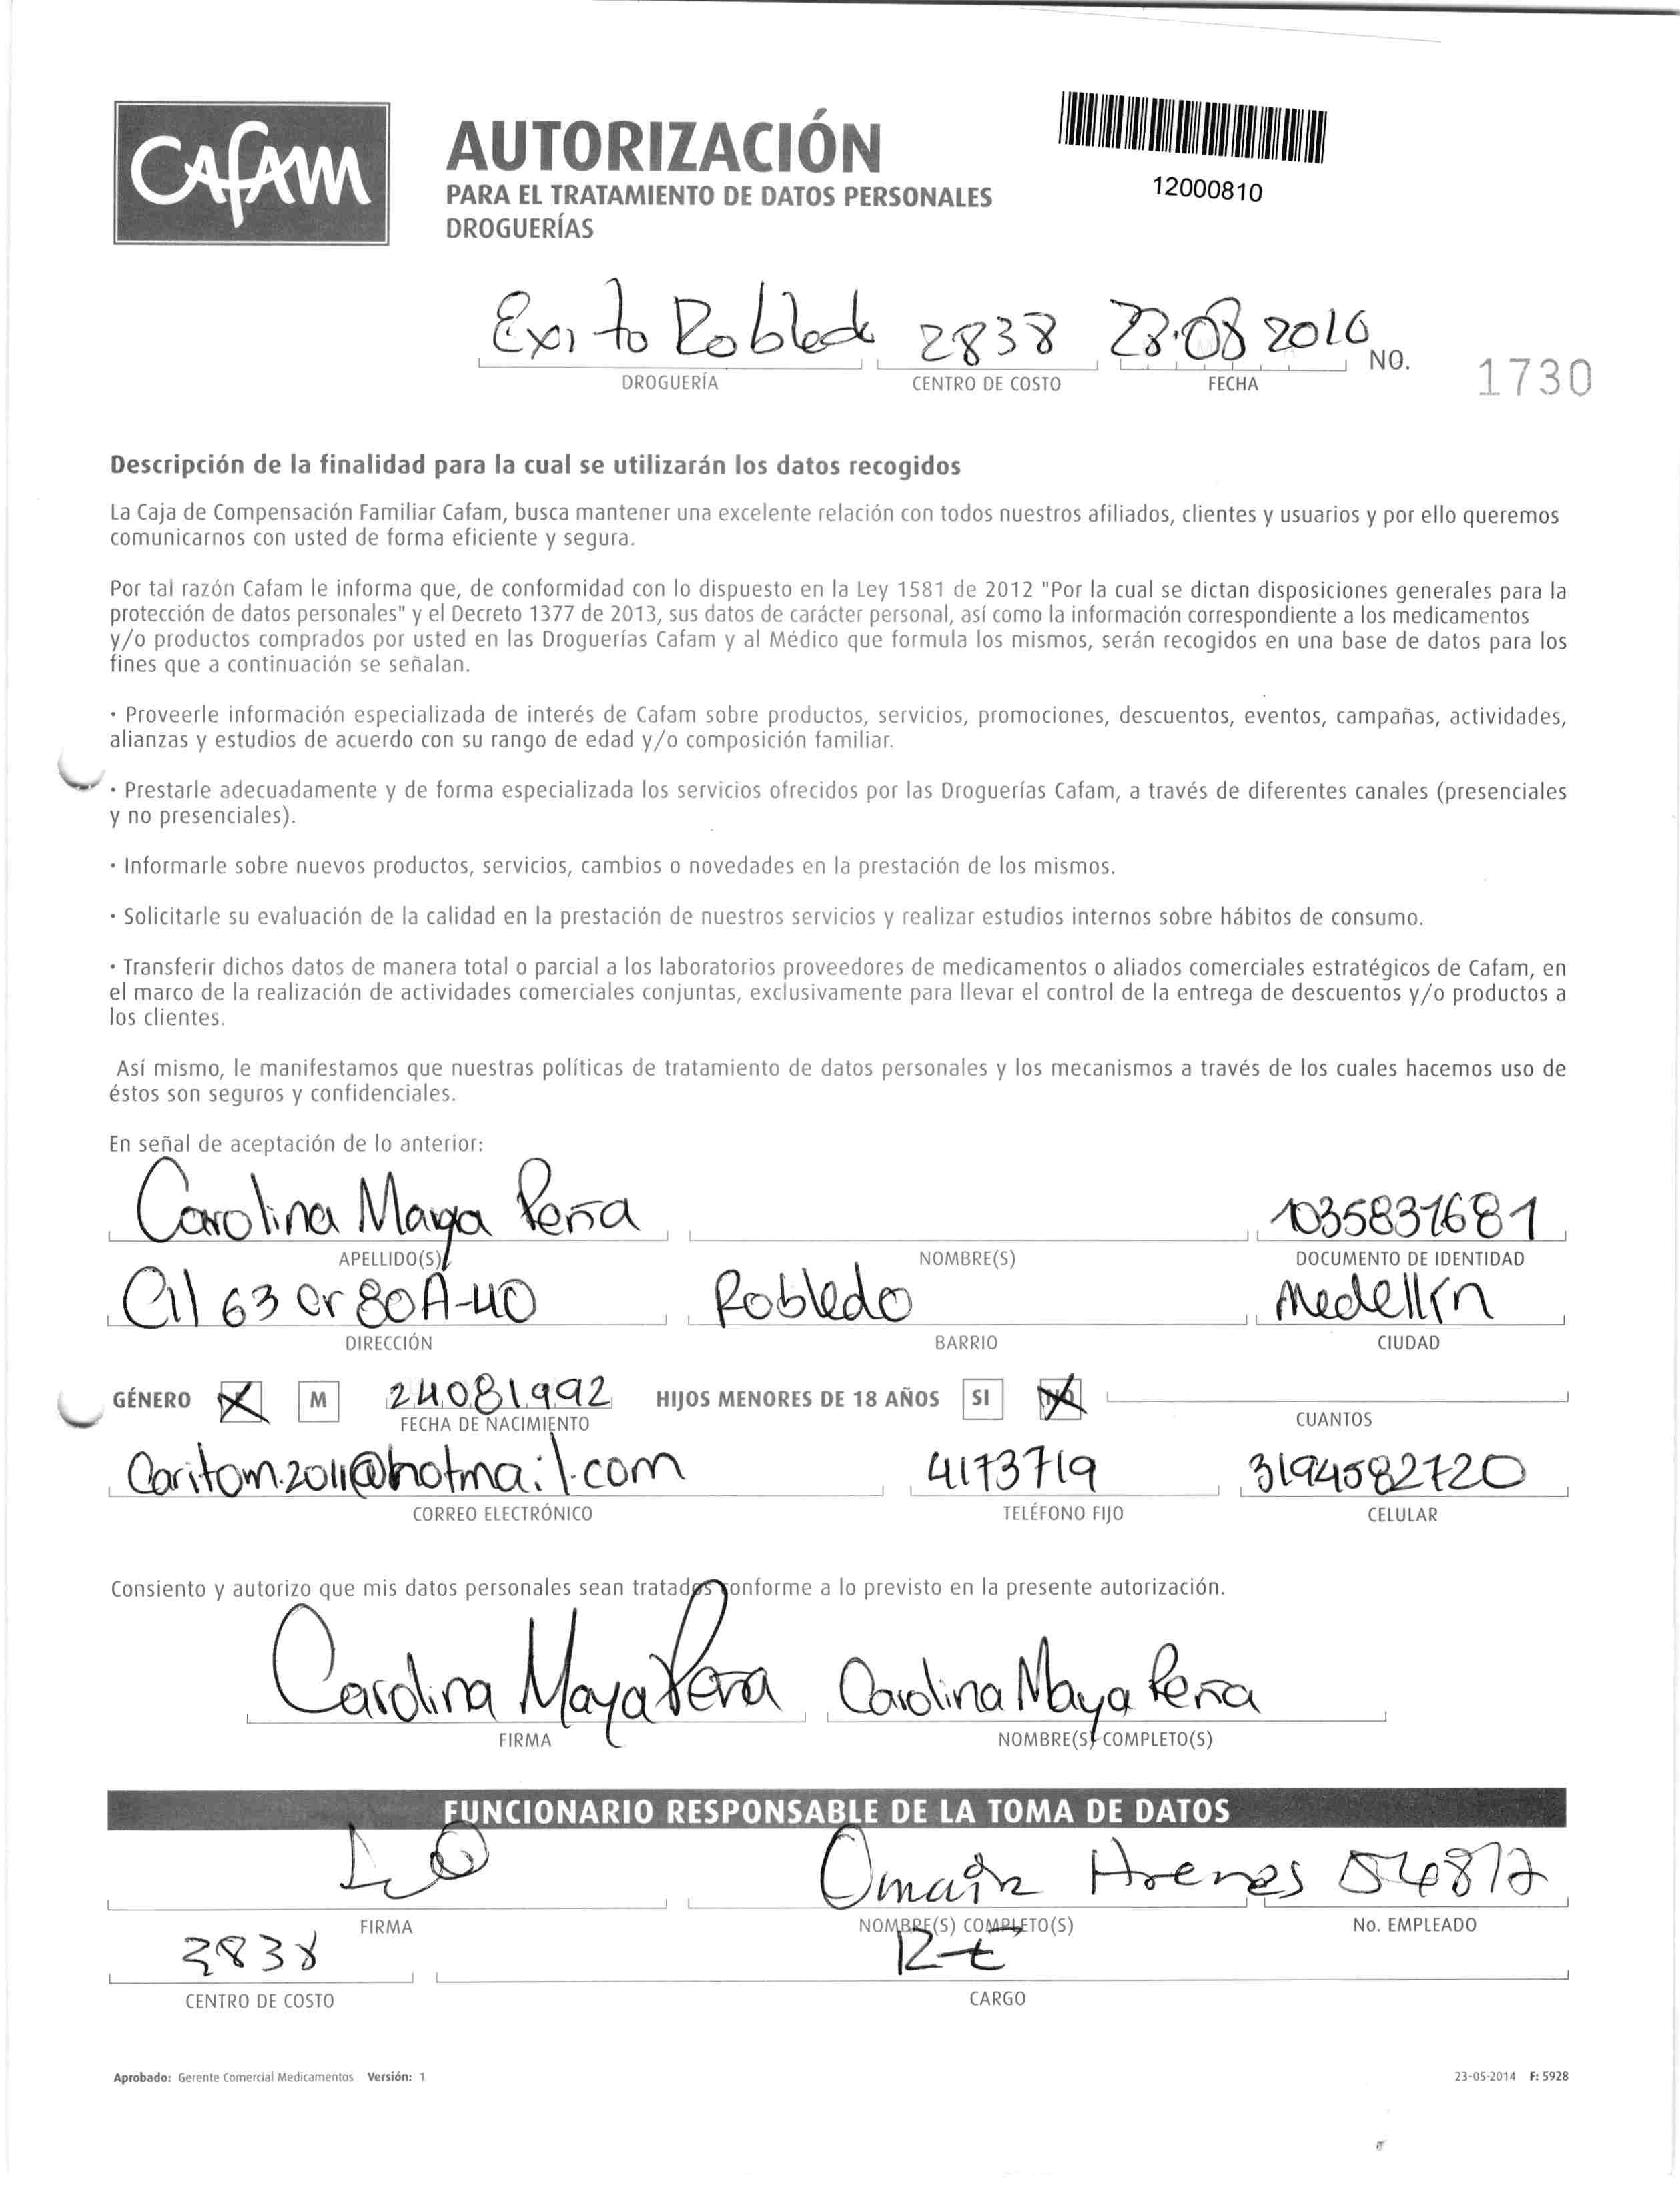 CAFAM
AUTORIZACIÓN
PARA EL TRATAMIENTO DE DATOS PERSONALES
DROGUERÍAS
12000810
Exito Robledo 2838 28.08 2016
DROGUERÍA CENTRO DE COSTO FECHA NO. 1730
Descripción de la finalidad para la cual se utilizarán los datos recogidos
La Caja de Compensación Familiar Cafam, busca mantener una excelente relación con todos nuestros afiliados, clientes y usuarios y por ello queremos
comunicarnos con usted de forma eficiente y segura.
Por tal razón Cafam le informa que, de conformidad con lo dispuesto en la Ley 1581 de 2012 "Por la cual se dictan disposiciones generales para la
protección de datos personales" y el Decreto 1377 de 2013, sus datos de carácter personal, así como la información correspondiente a los medicamentos
y/o productos comprados por usted en las Droguerías Cafam y al Médico que formula los mismos, serán recogidos en una base de datos para los
fines que a continuación se señalan.
· Proveerle información especializada de interés de Cafam sobre productos, servicios, promociones, descuentos, eventos, campañas, actividades,
alianzas y estudios de acuerdo con su rango de edad y/o composición familiar.
· Prestarle adecuadamente y de forma especializada los servicios ofrecidos por las Droguerías Cafam, a través de diferentes canales (presenciales
y no presenciales).
· Informarle sobre nuevos productos, servicios, cambios o novedades en la prestación de los mismos.
· Solicitarle su evaluación de la calidad en la prestación de nuestros servicios y realizar estudios internos sobre hábitos de consumo.
· Transferir dichos datos de manera total o parcial a los laboratorios proveedores de medicamentos o aliados comerciales estratégicos de Cafam, en
el marco de la realización de actividades comerciales conjuntas, exclusivamente para llevar el control de la entrega de descuentos y/o productos a
los clientes.
Así mismo, le manifestamos que nuestras políticas de tratamiento de datos personales y los mecanismos a través de los cuales hacemos uso de
éstos son seguros y confidenciales.
En señal de aceptación de lo anterior:
Carolina Maya Peña 1035831681
APELLIDO(S) NOMBRE(S) DOCUMENTO DE IDENTIDAD
Cll 63 Cr 80A-40 Robledo Medellín
DIRECCIÓN BARRIO CIUDAD
GÉNERO M 24081992 HIJOS MENORES DE 18 AÑOS SI NO
FECHA DE NACIMIENTO CUANTOS
Caritom.2011@hotmail.com 4173719 3194582720
CORREO ELECTRÓNICO TELÉFONO FIJO CELULAR
Consiento y autorizo que mis datos personales sean tratados conforme a lo previsto en la presente autorización.
Carolina Maya Peña Carolina Maya Peña
FIRMA NOMBRE(S) COMPLETO(S)
FUNCIONARIO RESPONSABLE DE LA TOMA DE DATOS
Omaira
FIRMA NOMBRE(S) COMPLETO(S) No. EMPLEADO
2838
CENTRO DE COSTO CARGO
Aprobado: Gerente Comercial Medicamentos Versión: 1 23-05-2014 F: 5928